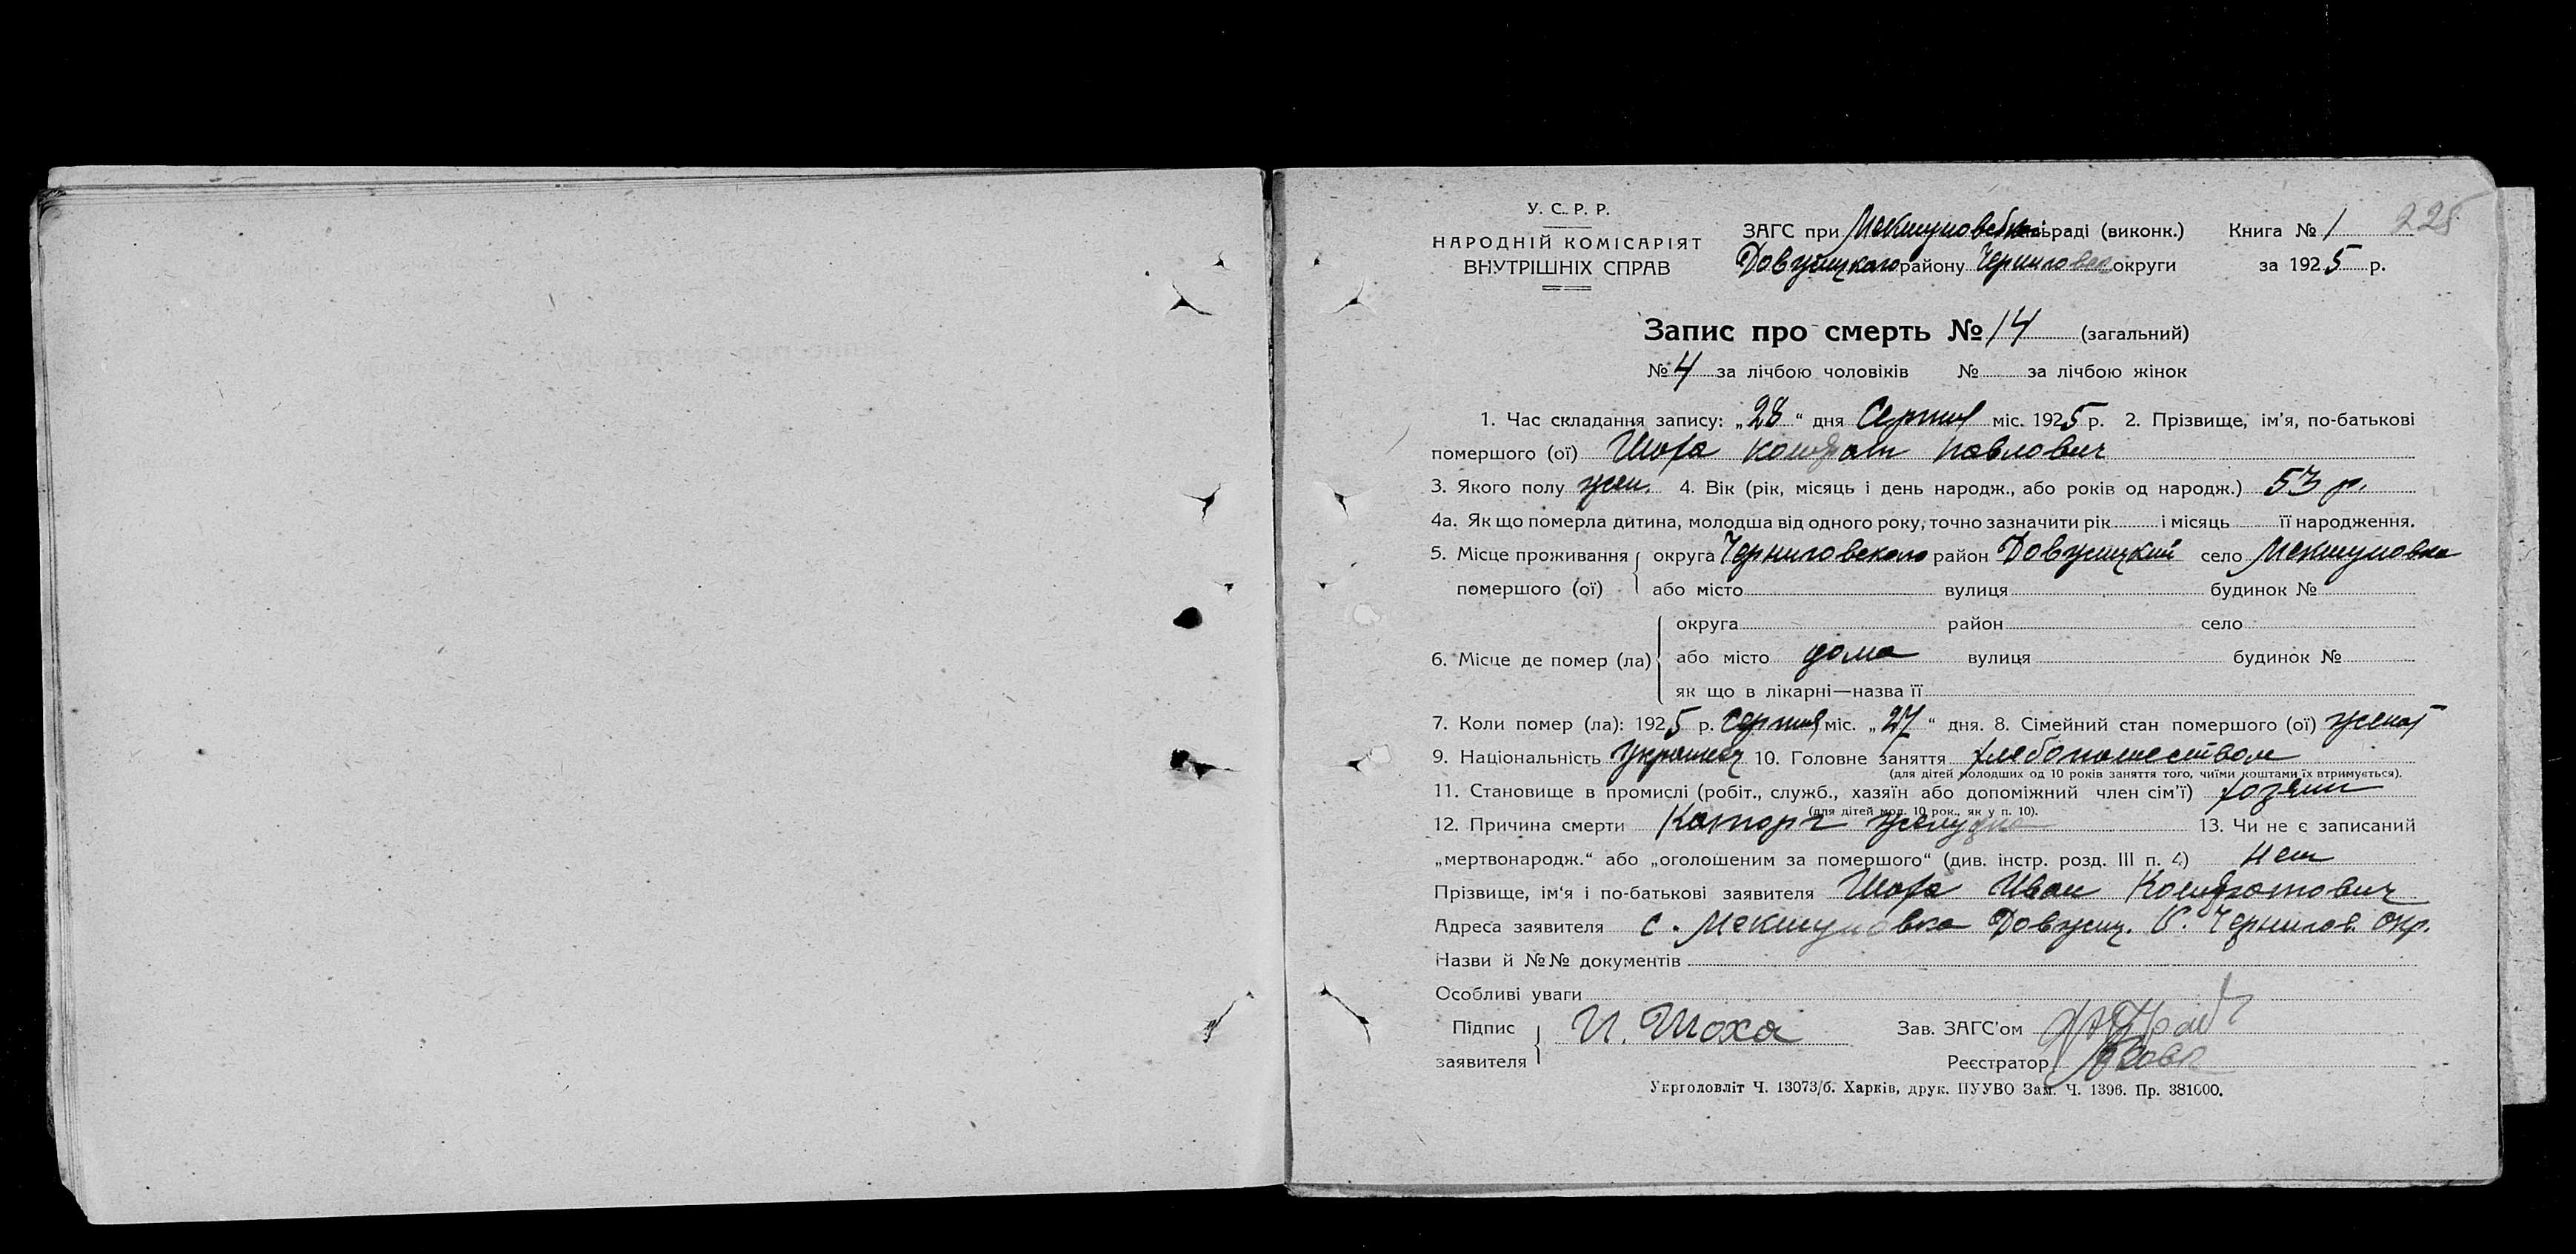 У. С. Р. Р.
НАРОДНІЙ КОМІСАРІЯТ
ВНУТРІШНІХ СПРАВ
ЗАГС при раді (виконк.) Книга № 1 225
району округи за 1925 р.
Запис про смерть № 14 (загальний)
№ 4 за лічбою чоловіків № за лічбою жінок
1. Час складання запису: „28“ дня Серпня міс. 1925 р. 2. Прізвище, ім'я, по-батькові
помершого (ої) Шоха Кондрат Павлович
3. Якого полу 4. Вік (рік, місяць і день народж., або років од народж.) 53 р.
4а. Як що померла дитина, молодша від одного року, точно зазначити рік і місяць її народження.
5. Місце проживання округа Черниговского район село
помершого (ої) або місто вулиця будинок №
округа район село
6. Місце де помер (ла) або місто дома вулиця будинок №
як що в лікарні—назва її
7. Коли помер (ла): 1925 р. Серпня міс. „27“ дня. 8. Сімейний стан помершого (ої) женат
9. Національність 10. Головне заняття хлебопашеством
(для дітей молодших од 10 років заняття того, чиїми коштами їх втримується).
11. Становище в промислі (робіт., служб., хазяїн або допоміжний член сім'ї) хозяин
(для дітей мол. 10 рок., як у п. 10).
12. Причина смерти желудка 13. Чи не є записаний
„мертвонародж.“ або „оголошеним за помершого“ (див. інстр. розд. III п. 4) нет
Прізвище, ім'я і по-батькові заявителя Шоха Иван Кондратович
Адреса заявителя с. Чернигов. окр.
Назви й №№ документів
Особливі уваги
Підпис И. Шоха Зав. ЗАГС'ом
заявителя Реєстратор
Укрголовліт Ч. 13073/б. Харків, друк. ПУУВО Зам. Ч. 1396. Пр. 381000.